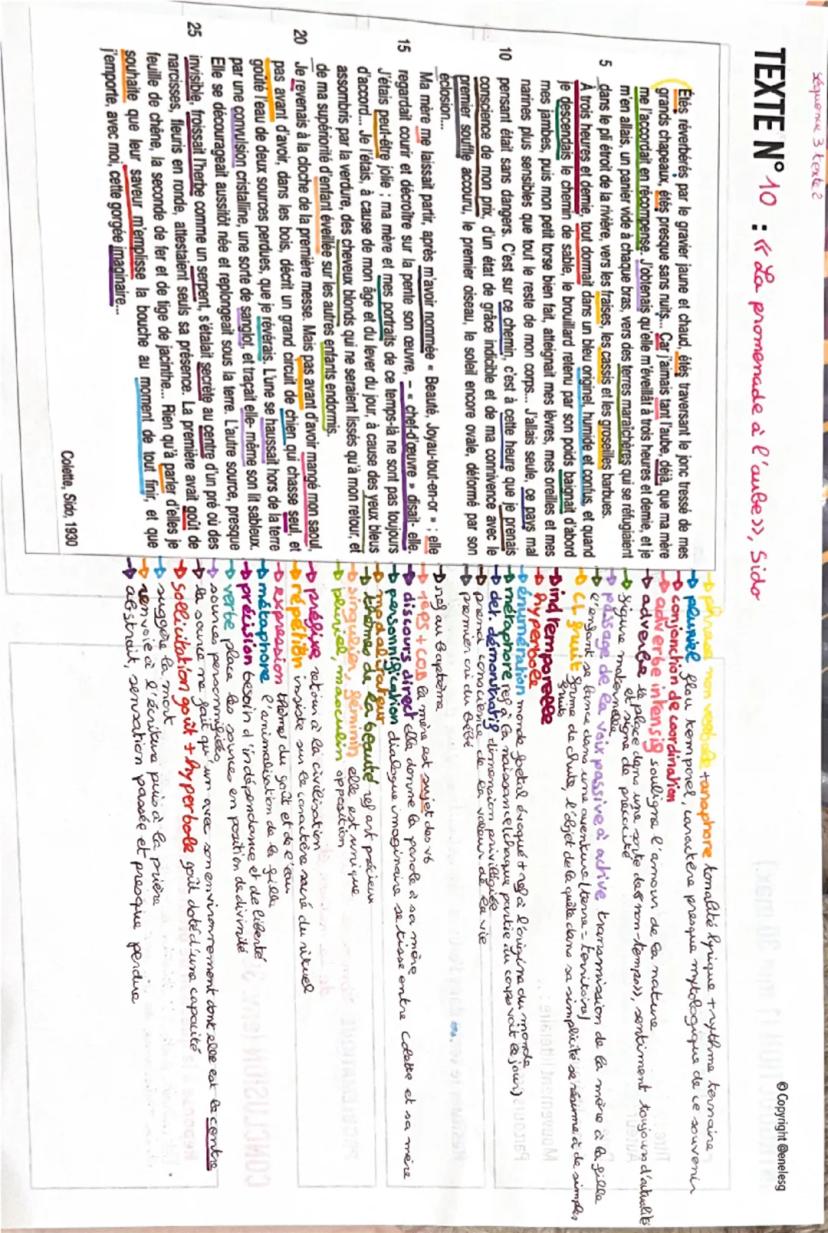 séquence 3 texte 2
TEXTE N° 10 : « La promenade à l'aube », Sido
© Copyright @enelesg
Étés réverbérés par le gravier jaune et chaud, étés traversant le jonc tressé de mes
grands chapeaux, étés presque sans nuits... Car j'aimais tant l'aube, déjà, que ma mère
me l'accordait en récompense. J'obtenais qu'elle m'éveillât à trois heures et demie, et je
m'en allais, un panier vide à chaque bras, vers des terres maraîchères qui se réfugiaient
5 dans le pli étroit de la rivière, vers les fraises, les cassis et les groseilles barbues.
À trois heures et demie, tout dormait dans un bleu originel, humide et confus, et quand
je descendais le chemin de sable, le brouillard retenu par son poids baignait d'abord
mes jambes, puis mon petit torse bien fait, atteignait mes lèvres, mes oreilles et mes
narines plus sensibles que tout le reste de mon corps... J'allais seule, ce pays mal
10 pensant était sans dangers. C'est sur ce chemin, c'est à cette heure que je prenais
conscience de mon prix, d'un état de grâce indicible et de ma connivence avec le
premier souffle accouru, le premier oiseau, le soleil encore ovale, déformé par son
éclosion...
Ma mère me laissait partir, après m'avoir nommée « Beauté, Joyau-tout-en-or » ; elle
regardait courir et décroître sur la pente son œuvre, – « chef-d'œuvre » disait- elle.
15 J'étais peut-être jolie ; ma mère et mes portraits de ce temps-là ne sont pas toujours
d'accord... Je l'étais, à cause de mon âge et du lever du jour, à cause des yeux bleus
assombris par la verdure, des cheveux blonds qui ne seraient lissés qu'à mon retour, et
de ma supériorité d'enfant éveillée sur les autres enfants endormis.
Je revenais à la cloche de la première messe. Mais pas avant d'avoir mangé mon saoul,
20 pas avant d'avoir, dans les bois, décrit un grand circuit de chien qui chasse seul, et
goûté l'eau de deux sources perdues, que je révérais. L'une se haussait hors de la terre
par une convulsion cristalline, une sorte de sanglot, et traçait elle- même son lit sableux.
Elle se décourageait aussitôt née et replongeait sous la terre. L'autre source, presque
invisible, froissait l'herbe comme un serpent, s'étalait secrète au centre d'un pré où des
25 narcisses, fleuris en ronde, attestaient seuls sa présence. La première avait goût de
feuille de chêne, la seconde de fer et de tige de jacinthe... Rien qu'à parler d'elles je
souhaite que leur saveur m'emplisse la bouche au moment de tout finir, et que
j'emporte, avec moi, cette gorgée imaginaire...
Colette, Sido, 1930
→ phrases non verbales + anaphore tonalité lyrique + rythme ternaire
→ pluriel flou temporel, caractère presque mythologique de ce souvenir
→ conjonction de coordination
→ adverbe intensif souligne l'amour de la nature
→ adverbe le place dans une sorte de « non-temps », sentiment toujours d'actualité
et signe de précocité
→ figure maternelle
→ passage de la voix passive à active transmission de la mère à la fille
→ l'enfant se lance dans une aventure (terre = territoire)
→ CL fruit forme de chute, l'objet de la quête dans sa simplicité se résume à de simples
fruits
→ ind temporelle
→ hyperbole
→ énumération monde foetal évoqué + ref à l'origine du monde
→ métaphore ref à la naissance (chaque partie du corps voit le jour)
→ det. démonstratif dimension privilégiée
→ prend conscience de la valeur de la vie
→ premier cri du bébé
→ ref au baptême
→ 1 pers + COD la mère est sujet des vb
→ discours direct elle donne la parole à sa mère
→ personnification dialogue imaginaire se tisse entre Colette et sa mère
→ modalisateur
→ thèmes de la beauté ref art précieux
→ singulier, féminin elle est unique
→ pluriel, masculin opposition
→ préfixe retour à la civilisation
→ répétition insiste sur le caractère sacré du rituel
→ expression thème du goût et de l'eau
→ métaphore l'animalisation de la fille
→ précision besoin d'indépendance et de liberté
→ verbe place les sources en position de divinité
→ sources personnifiées
→ la source ne fait qu'un avec son environnement dont elle est le centre
→ sollicitation goût + hyperbole goût doté d'une capacité
→ suggère la mort
→ renvoie à l'écriture puis à la prière
→ abstrait, sensation passée et presque perdue